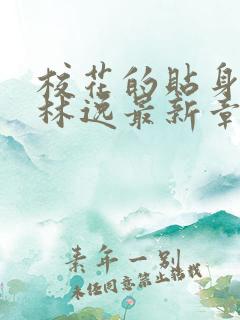 校花的贴身
林逸最新章
素年一别
未经同意禁止转载